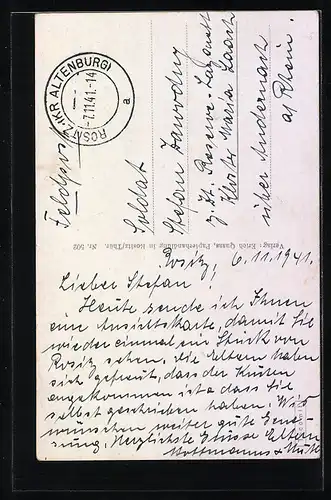 ROSITZ (KR ALTENBURG)
-7.11.41.-14
a
Feldpost
Soldat
Stefan
z. Zt. Reserve-Lazarett
Kloster Maria Laach
über Andernach
a/ Rhein.
Verlag: Erich Quaas, Papierhandlung in Rositz/Thür. Nr. 502
Rositz, 6.11.1941.
Lieber Stefan!
Heute sende ich Ihnen
eine Ansichtskarte, damit Sie
wieder einmal ein Stück von
Rositz sehen. Die Eltern haben
sich gefreut, dass der Kuchen
angekommen ist u. dass Sie
selbst geschrieben haben. Wir
wünschen weiter gute Gene-
sung. Herzlichste Grüsse Eltern